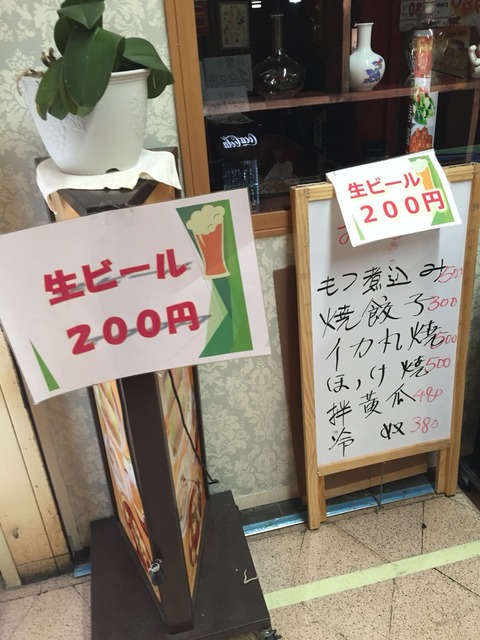 生ビール
200円
生ビール
200円
もつ煮込み 500
焼餃子 300
イカ丸焼 500
ほっけ焼 500
拌黄瓜 480
冷奴 380
Coca-Cola